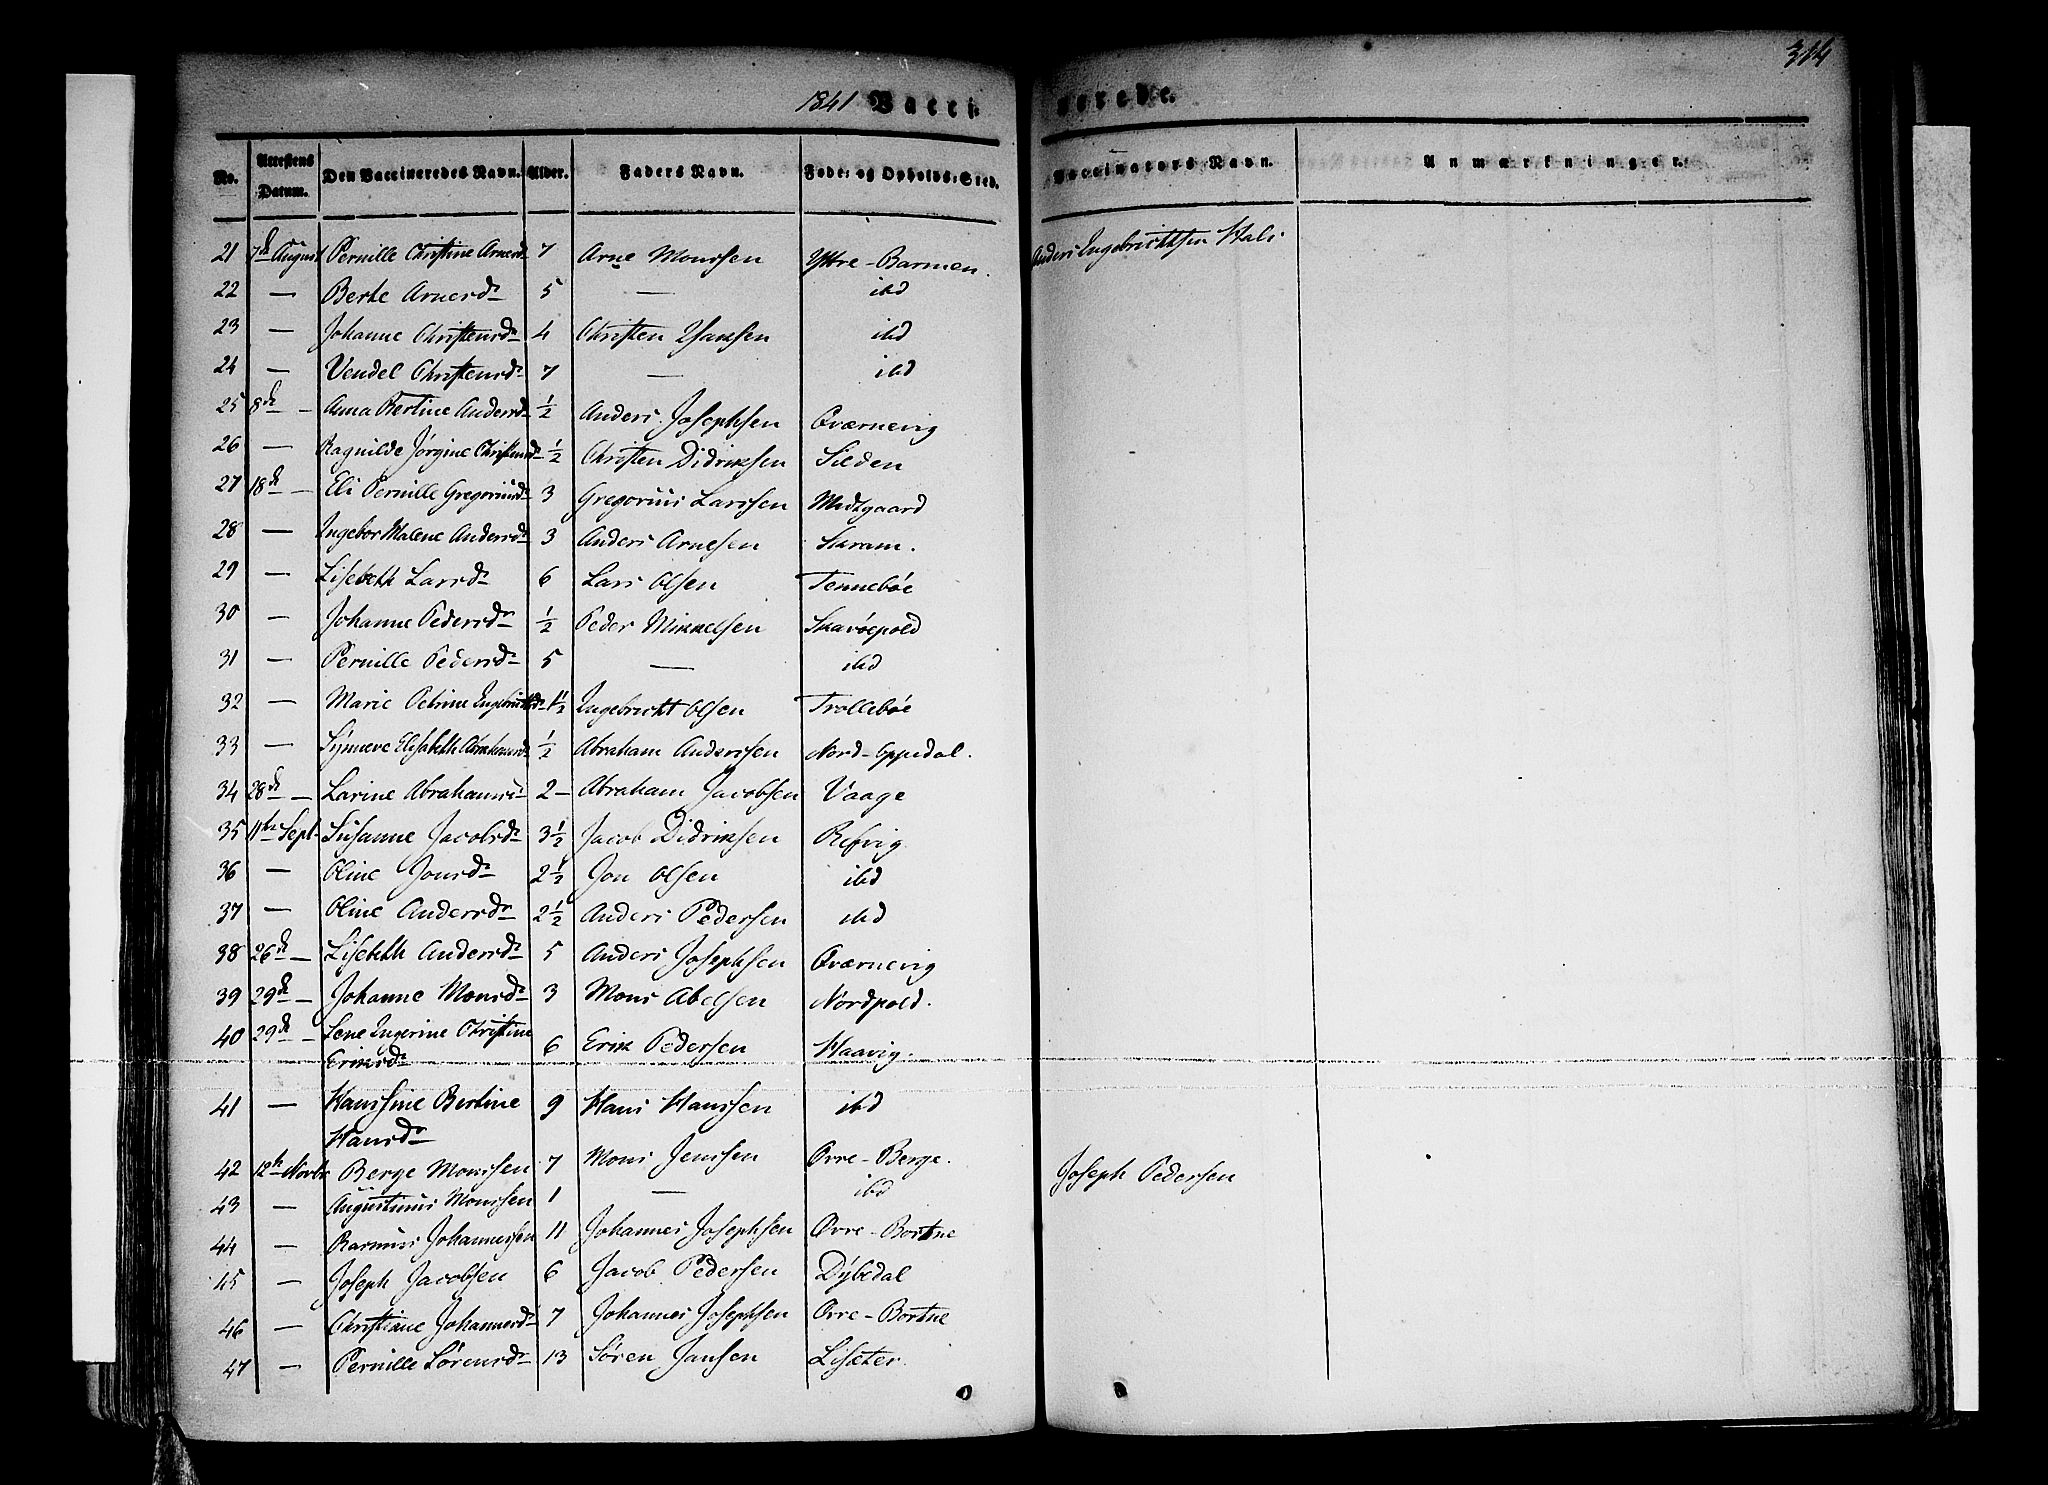 314
1841 Vacci nerede.
No. Attestens Datum. Den Vaccineredes Navn. Alder. Faders Navn. Føde- og Opholds-Sted. Vaccinators Navn. Anmærkninger.
21 7de August Pernille Christine Arnesd. 7 Arne Monssen Yttre-Barmen. Anders Engebrichtsen
22 — Berte Arnesd. 5 — ibd
23 — Johanne Christensd. 4 Christen Hansen ibd
24 — Vendel Christensd. 7 — ibd
25 8de — Anna Bertine Andersd. ½ Anders Josephsen Qværnevig
26 — Ragnilde Jørgine Christensd. ½ Christen Didriksen Silden
27 18de — Eli Pernille Gregoriusd. 3 Gregorius Larssen Midtgaard
28 — Ingebor Malene Andersd. 3 Anders Arnesen Skram.
29 — Lisebeth Larsd. 6 Lars Olsen Tennebøe
30 — Johanne Pedersd. ½ Peder Mikkelsen Skavøepold
31 — Pernille Pedersd. 5 — ibd
32 — Marie Petrine Engebrichtsd. 1½ Ingebricht Olsen Trollebøe
33 — Synneve Elisabeth Abrahamsd. ½ Abraham Anderssen Nord-Oppedal.
34 28de — Larine Abrahamsd. 2 — Abraham Jacobsen Vaage
35 11te Sept. Susanne Jacobsd. 3½ Jacob Didriksen Refvig
36 — Oline Jonsd. 2½ Jon Olsen ibd
37 — Oline Andersd. 2½ Anders Pedersen ibd
38 26de — Lisebeth Andersd. 5 Anders Josephsen Qværnevig
39 29de — Johanne Monsd. 3 Mons Abelsen Nordpold.
40 29de — Lene Ingerine Christine
Eriksd. 6 Erik Pedersen Haavig.
41 — Hanssine Bertine 9 Hans Hanssen ibd
Hansd.
42 12te Novbr Berge Monssen 7 Mons Jenssen Øvre-Berge. Joseph Pedersen
43 — Augustinus Monssen 1 — ibd
44 — Rasmus Johannessen 11 Johannes Josephsen Øvre-Bortne
45 — Joseph Jacobsen 6 Jacob Pedersen Dybedal
46 — Christiane Johannesd. 7 Johannes Josephsen Øvre-Bortne
47 — Pernille Sørensd. 13 Søren Jansen Lisæter.